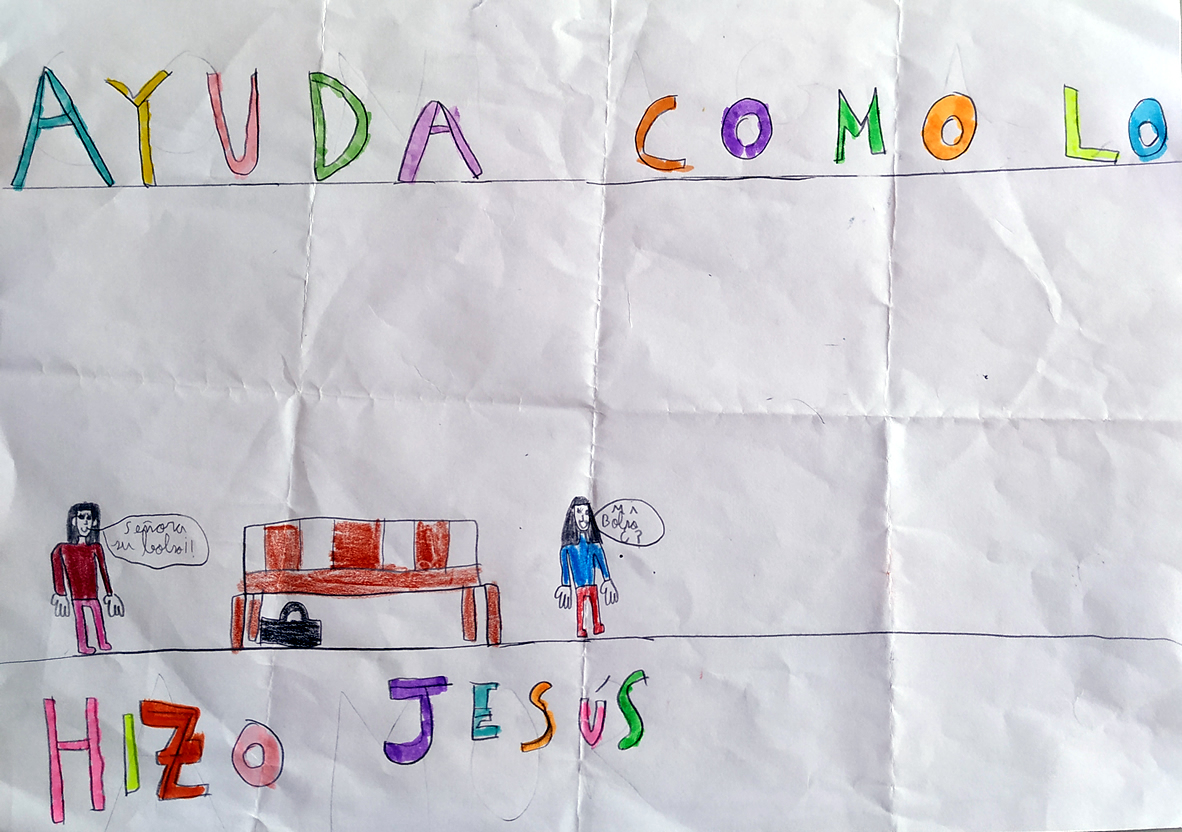 AYUDA COMO LO
Señora
su bolso!!
Mi
Bolso
¿?
HIZO JESÚS